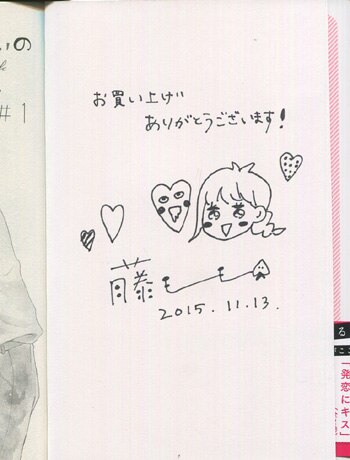 いの
#1
お買い上げ
ありがとうございます!
藤モモ
2015.11.13.
る
「発
恋に
キス」